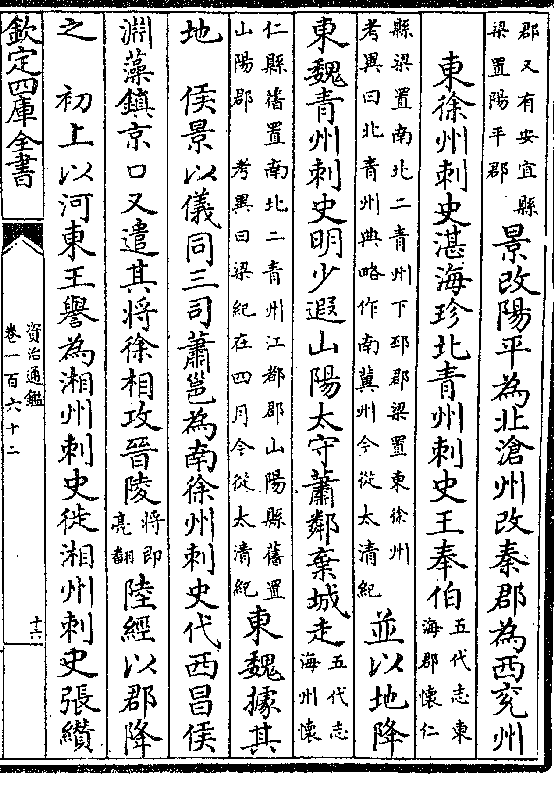 郡又有安宜縣
梁置陽平郡
景改陽平為北滄州改秦郡為西兗州
東徐州刺史湛海珍北青州刺史王奉伯
五代志東
海郡懷仁
縣梁置南北二青州下邳郡梁置東徐州
考異曰北青州典略作南冀州今從太清紀
並以地降
東魏青州刺史明少遐山陽太守蕭鄰棄城走
五代志
海州懷
仁縣舊置南北二青州江都郡山陽縣舊置
山陽郡 考異曰梁紀在四月今從太清紀
東魏據其
地 侯景以儀同三司蕭邕為南徐州刺史代西昌侯
淵藻鎮京口又遣其將徐相攻晉陵
將即
亮翻
陸經以郡降
之 初上以河東王譽為湘州刺史徙湘州刺史張纘
欽定四庫全書
資治通鑑
卷一百六十二
十六